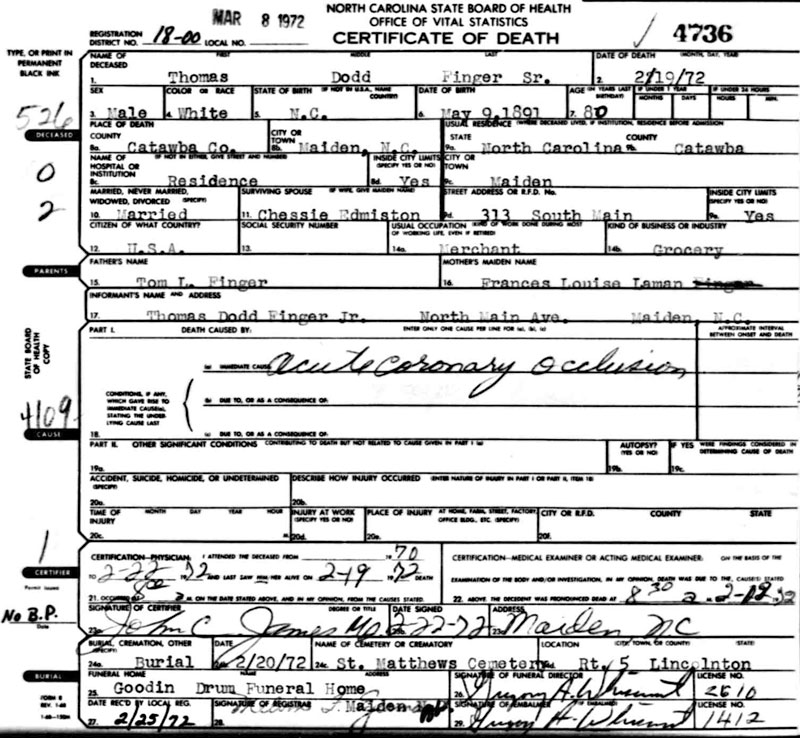 NORTH CAROLINA STATE BOARD OF HEALTH
OFFICE OF VITAL STATISTICS
CERTIFICATE OF DEATH
MAR 8 1972
4736
REGISTRATION DISTRICT NO. 18-00 LOCAL NO.
TYPE, OR PRINT IN PERMANENT BLACK INK
NAME OF DECEASED FIRST MIDDLE LAST DATE OF DEATH (MONTH, DAY, YEAR)
1. Thomas Dodd Finger Sr. 2. 2/19/72
SEX COLOR OR RACE STATE OF BIRTH (IF NOT IN U.S.A., NAME COUNTRY) DATE OF BIRTH AGE (IN YEARS LAST BIRTHDAY) IF UNDER 1 YEAR MONTHS DAYS IF UNDER 24 HOURS HOURS MIN.
3. Male 4. White 5. N.C. 6. May 9,1891 7. 80
526
DECEASED
PLACE OF DEATH USUAL RESIDENCE (WHERE DECEASED LIVED, IF INSTITUTION, RESIDENCE BEFORE ADMISSION)
COUNTY CITY OR TOWN STATE COUNTY
8a. Catawba Co. 8b. Maiden, N.C. 9a. North Carolina 9b. Catawba
0
NAME OF HOSPITAL OR INSTITUTION (IF NOT IN EITHER, GIVE STREET AND NUMBER) INSIDE CITY LIMITS (SPECIFY YES OR NO) CITY OR TOWN
8c. Residence 8d. Yes 9c. Maiden
2
MARRIED, NEVER MARRIED, WIDOWED, DIVORCED (SPECIFY) SURVIVING SPOUSE (IF WIFE, GIVE MAIDEN NAME) STREET ADDRESS OR R.F.D. No. INSIDE CITY LIMITS (SPECIFY YES OR NO)
10. Married 11. Chessie Edmiston 9d. 313 South Main 9e. Yes
CITIZEN OF WHAT COUNTRY? SOCIAL SECURITY NUMBER USUAL OCCUPATION (KIND OF WORK DONE DURING MOST OF WORKING LIFE, EVEN IF RETIRED) KIND OF BUSINESS OR INDUSTRY
12. U.S.A. 13. 14a. Merchant 14b. Grocery
PARENTS
FATHER'S NAME MOTHER'S MAIDEN NAME
15. Tom L. Finger 16. Frances Louise Laman Finger
INFORMANT'S NAME AND ADDRESS
17. Thomas Dodd Finger Jr. North Main Ave. Maiden, N.C.
STATE BOARD OF HEALTH COPY
PART I. DEATH CAUSED BY: ENTER ONLY ONE CAUSE PER LINE FOR (a), (b), (c) APPROXIMATE INTERVAL BETWEEN ONSET AND DEATH
(a) IMMEDIATE CAUSE acute coronary occlusion
CONDITIONS, IF ANY, WHICH GAVE RISE TO IMMEDIATE CAUSE(a), STATING THE UNDERLYING CAUSE LAST
(b) DUE TO, OR AS A CONSEQUENCE OF:
4109
CAUSE
18. (c) DUE TO, OR AS A CONSEQUENCE OF:
PART II. OTHER SIGNIFICANT CONDITIONS CONTRIBUTING TO DEATH BUT NOT RELATED TO CAUSE GIVEN IN PART I (a) AUTOPSY? (YES OR NO) IF YES WERE FINDINGS CONSIDERED IN DETERMINING CAUSE OF DEATH
19a. 19b. 19c.
ACCIDENT, SUICIDE, HOMICIDE, OR UNDETERMINED (SPECIFY) DESCRIBE HOW INJURY OCCURRED (ENTER NATURE OF INJURY IN PART I OR PART II, ITEM 18)
20a. 20b.
TIME OF INJURY MONTH DAY YEAR HOUR INJURY AT WORK (SPECIFY YES OR NO) PLACE OF INJURY AT HOME, FARM, STREET, FACTORY, OFFICE BLDG., ETC. (SPECIFY) CITY OR R.F.D. COUNTY STATE
20c. M. 20d. 20e. 20f.
1
CERTIFIER
CERTIFICATION—PHYSICIAN: I ATTENDED THE DECEASED FROM 1970 CERTIFICATION—MEDICAL EXAMINER OR ACTING MEDICAL EXAMINER: ON THE BASIS OF THE
TO 2-22 1972 AND LAST SAW HIM/HER ALIVE ON 2-19 1972 DEATH EXAMINATION OF THE BODY AND/OR INVESTIGATION, IN MY OPINION, DEATH WAS DUE TO THE CAUSE(S) STATED
21. OCCURRED M. ON THE DATE STATED ABOVE, AND IN MY OPINION, FROM THE CAUSES STATED. 22. ABOVE. THE DECEDENT WAS PRONOUNCED DEAD AT 8 30 a M.
Permit Issued
No B.P.
Date
SIGNATURE OF CERTIFIER DEGREE OR TITLE DATE SIGNED ADDRESS
23a. John C. James MD 23b. 2-22-72 23c. Maiden NC
BURIAL, CREMATION, OTHER (SPECIFY) DATE NAME OF CEMETERY OR CREMATORY LOCATION (CITY, TOWN, OR COUNTY) (STATE)
24a. Burial 2/20/72 24c. St. Matthews Cemetery Rt. 5 Lincolnton
BURIAL
FUNERAL HOME NAME ADDRESS SIGNATURE OF FUNERAL DIRECTOR LICENSE NO.
25. Goodin Drum Funeral Home 26. 2610
FORM 8
REV. 1-68
DATE REC'D BY LOCAL REG. SIGNATURE OF REGISTRAR SIGNATURE OF EMBALMER (IF EMBALMED) LICENSE NO.
27. 2/25/72 28. Maiden 29. 1412